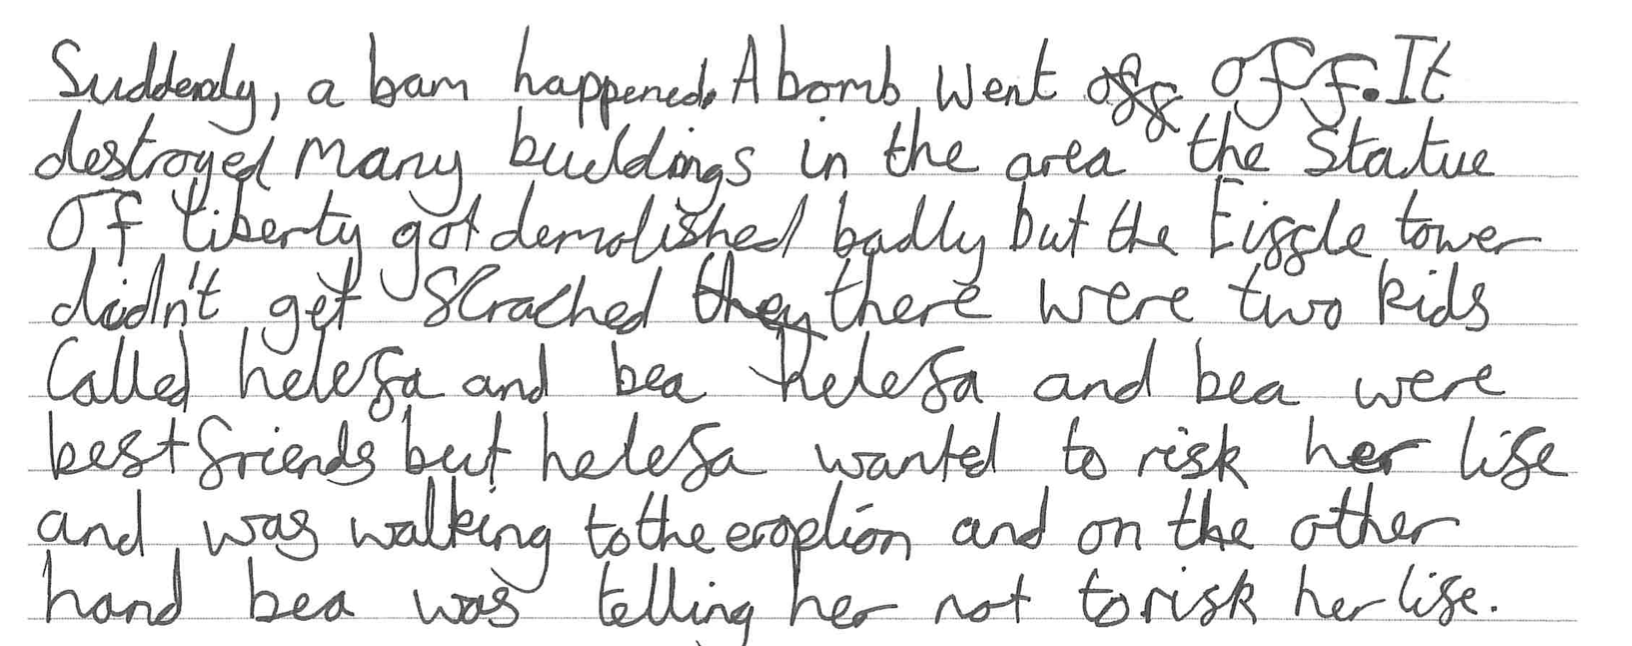 Suddenly, a bam happened. A bomb went off off. It
destroyed many buildings in the area the Statue
Of liberty got demolished badly but the Eiffle tower
didn't get Scrached they there were two kids
Called helefa and bea helefa and bea were
best friends but helefa wanted to risk her life
and was walking to the eroption and on the other
hand bea was telling her not to risk her life.